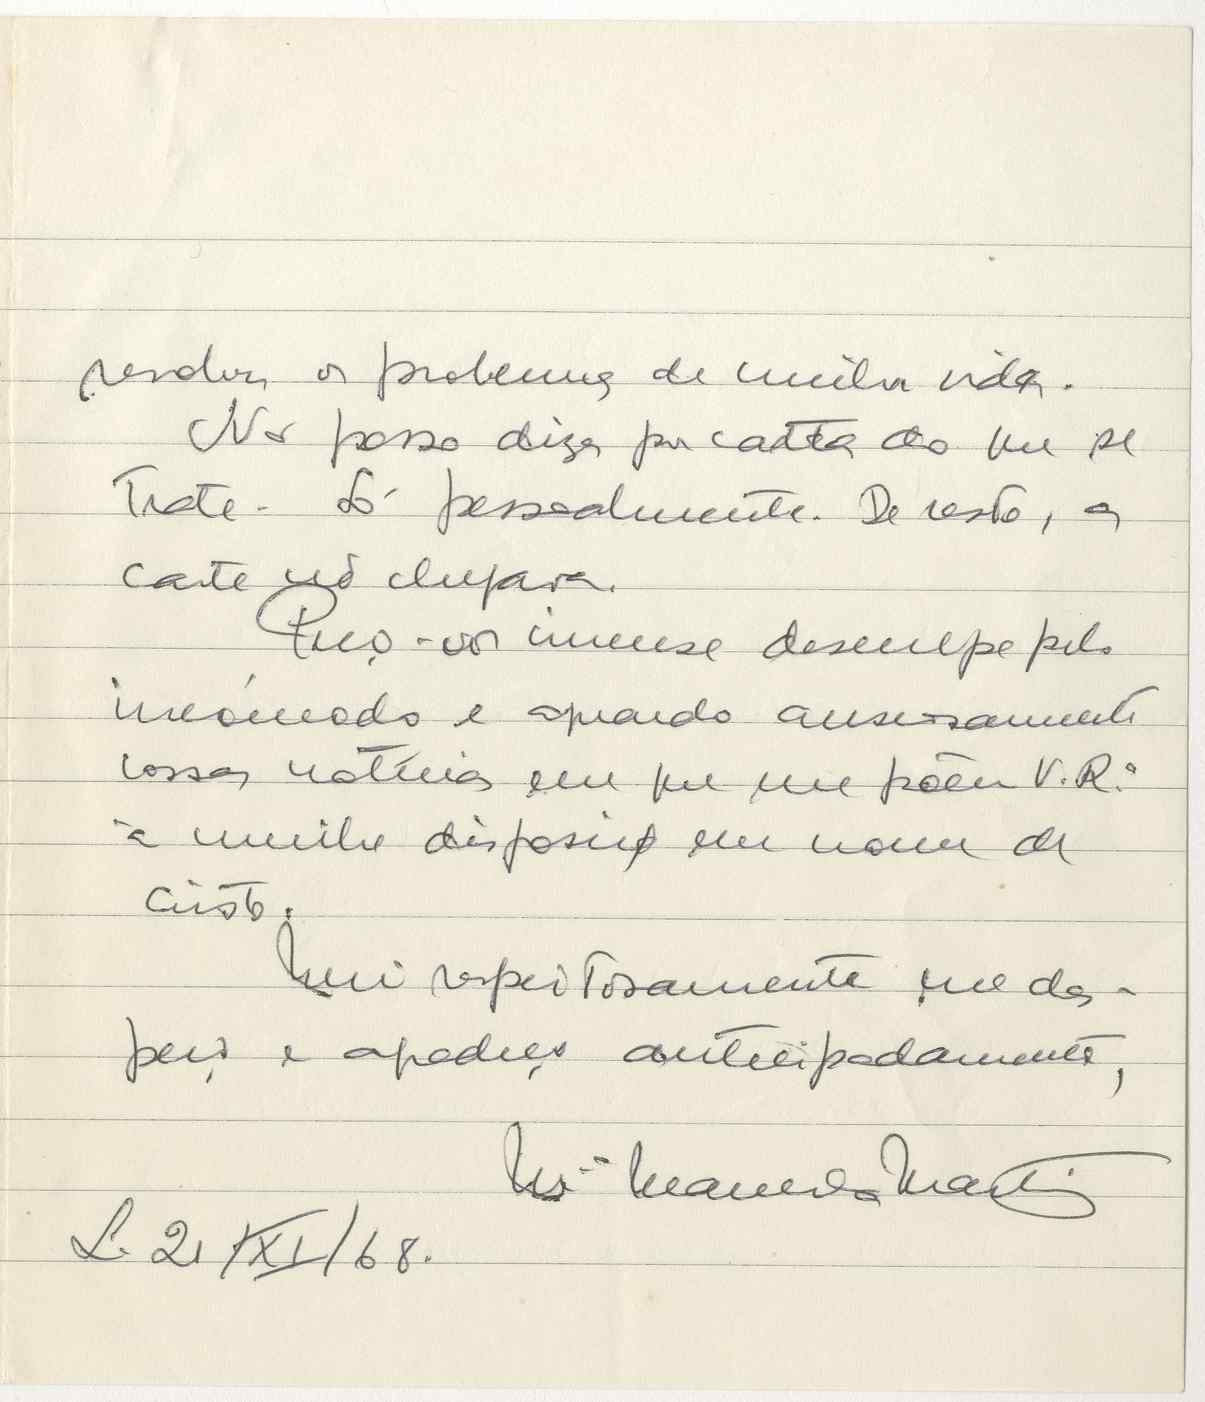 resolver os problemas de minha vida.
Não posso dizer por carta do que se
trata. Só pessoalmente. De resto, a
carta não chegava.
Peço-vos imensa desculpa pelo
incómodo e aguardo ansiosamente
vossas notícias em que me põem V. R.ª
à minha disposição em nome de
Cristo.
Mui respeitosamente me des-
peço e agradeço antecipadamente,
Mª Manuela Martins
L. 21/XI/68.